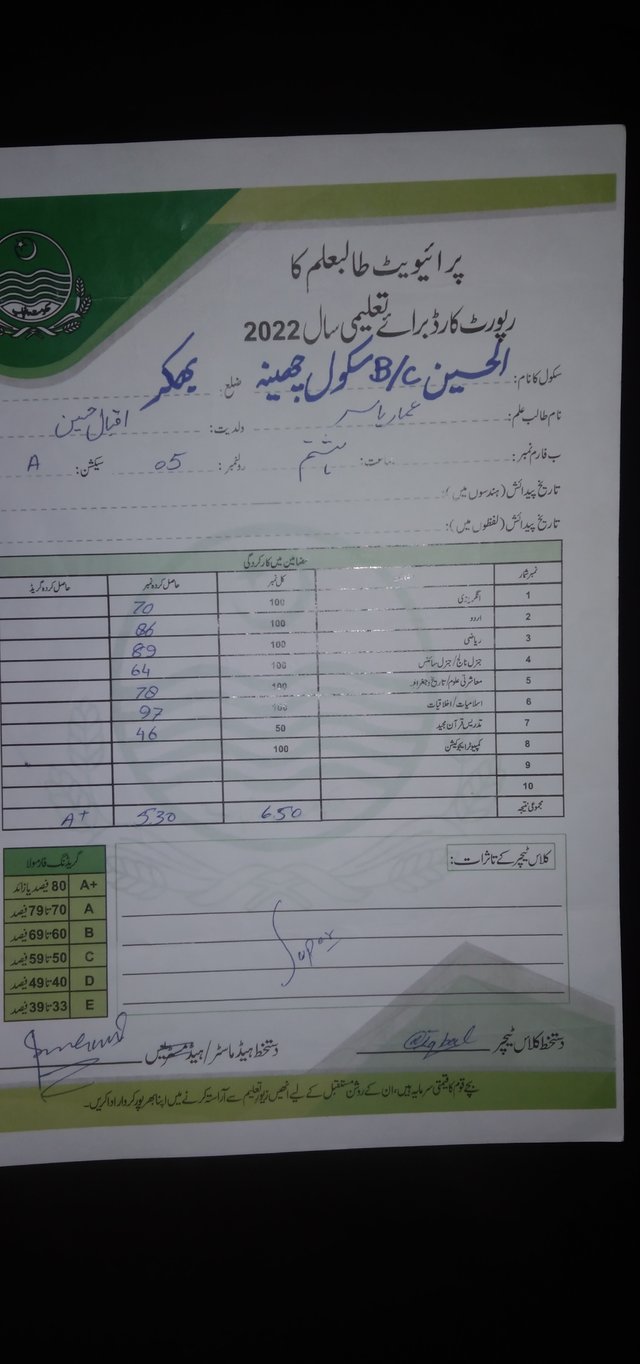 پرائیویٹ طالبعلم کا
رپورٹ کارڈ برائے تعلیمی سال 2022
سکول کا نام: الحسین B/C سکول چھینہ ضلع: بھکر
نام طالب علم: عمار یاسر ولدیت: اقبال حسین
ب فارم نمبر: جماعت: ہشتم رولنمبر: 05 سیکشن: A
تاریخ پیدائش (ہندسوں میں):
تاریخ پیدائش (لفظوں میں):
مضامین میں کارکردگی
نمبر شمار کل نمبر حاصل کردہ نمبر حاصل کردہ گریڈ
1 انگریزی 100 70
2 اردو 100 86
3 ریاضی 100 89
4 جنرل نالج/جنرل سائنس 100 64
5 معاشرتی علوم/تاریخ و جغرافیہ 100 78
6 اسلامیات/اخلاقیات 100 97
7 تدریس قرآن مجید 50 46
8 کمپیوٹر ایجوکیشن 100
9
10
مجموعی نتیجہ 650 530 A+
کلاس ٹیچر کے تاثرات:
گریڈنگ فارمولا
A+ 80 فیصد یا زائد
A 70 تا 79 فیصد
B 60 تا 69 فیصد
C 50 تا 59 فیصد
D 40 تا 49 فیصد
E 33 تا 39 فیصد
دستخط کلاس ٹیچر Iqbal دستخط ہیڈ ماسٹر/ہیڈ
بچے قوم کا قیمتی سرمایہ ہیں، ان کے روشن مستقبل کے لیے انھیں زیور تعلیم سے آراستہ کرنے میں اپنا بھرپور کردار ادا کریں۔